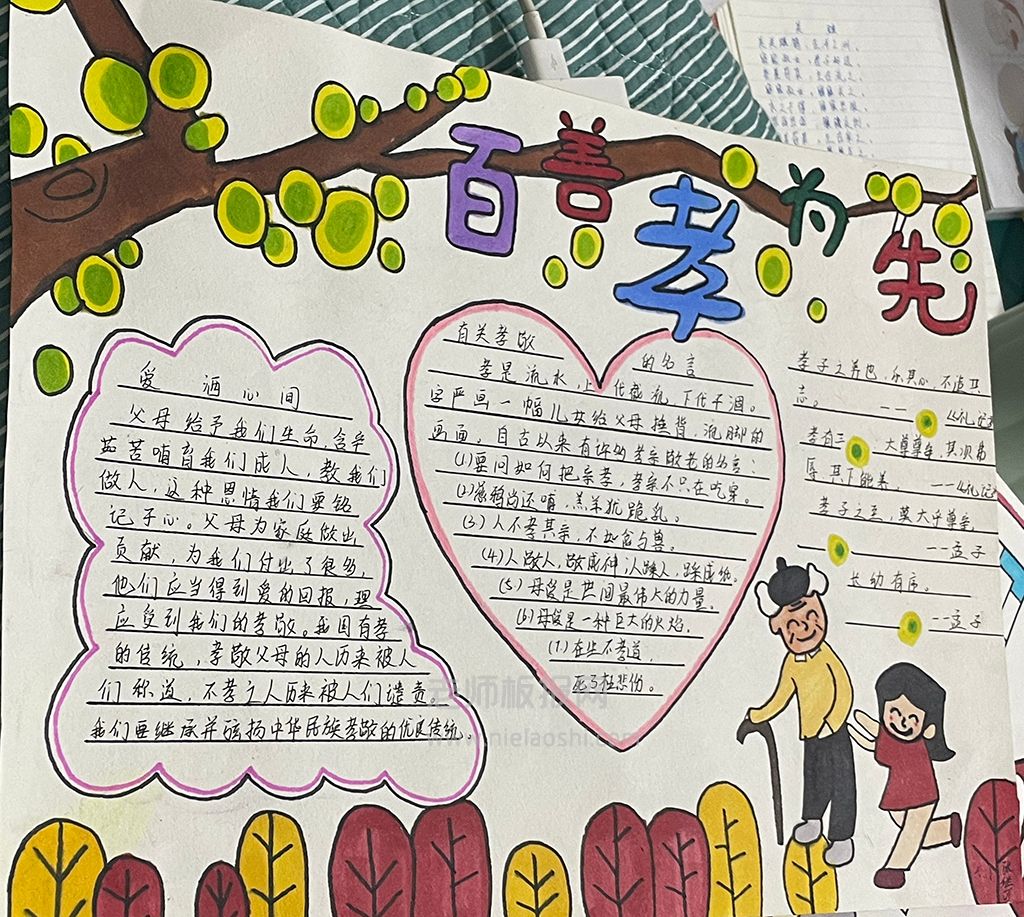 百善孝为先
爱洒心间
父母给予我们生命,含辛
茹苦哺育我们成人,教我们
做人,这种恩情我们要铭
记于心。父母为家庭做出
贡献,为我们付出了很多,
他们应当得到爱的回报,理
应受到我们的孝敬。我国有孝
的传统,孝敬父母的人历来被人
们称道,不孝之人历来被人们谴责
我们要继承并弘扬中华民族孝敬的优良传统。
有关孝敬的名言
孝是流水,上代截流,下代干涸。
字严画一幅儿女给父母捶背,洗脚的
画面。自古以来有许多孝亲敬老的名言:
(1)要问如何把亲孝,孝亲不只在吃穿。
(2)慈鸦尚还哺,羔羊犹跪乳。
(3)人不孝其亲,不如禽与兽。
(4)人敬人,敬成神;人踩人,踩成
(5)母爱是世间最伟大的力量。
(6)母爱是一种巨大的火焰。
(7)在世不孝道,
死了枉悲伤。
孝子之养也,乐其心,不违其
志。
——《礼记
孝有三 大尊尊亲,其次弗
辱 其下能养 ——《礼记
孝子之至,莫大乎尊亲,
——孟子
长幼有序。
——孟子
老师板报网
www.nielaoshi.com